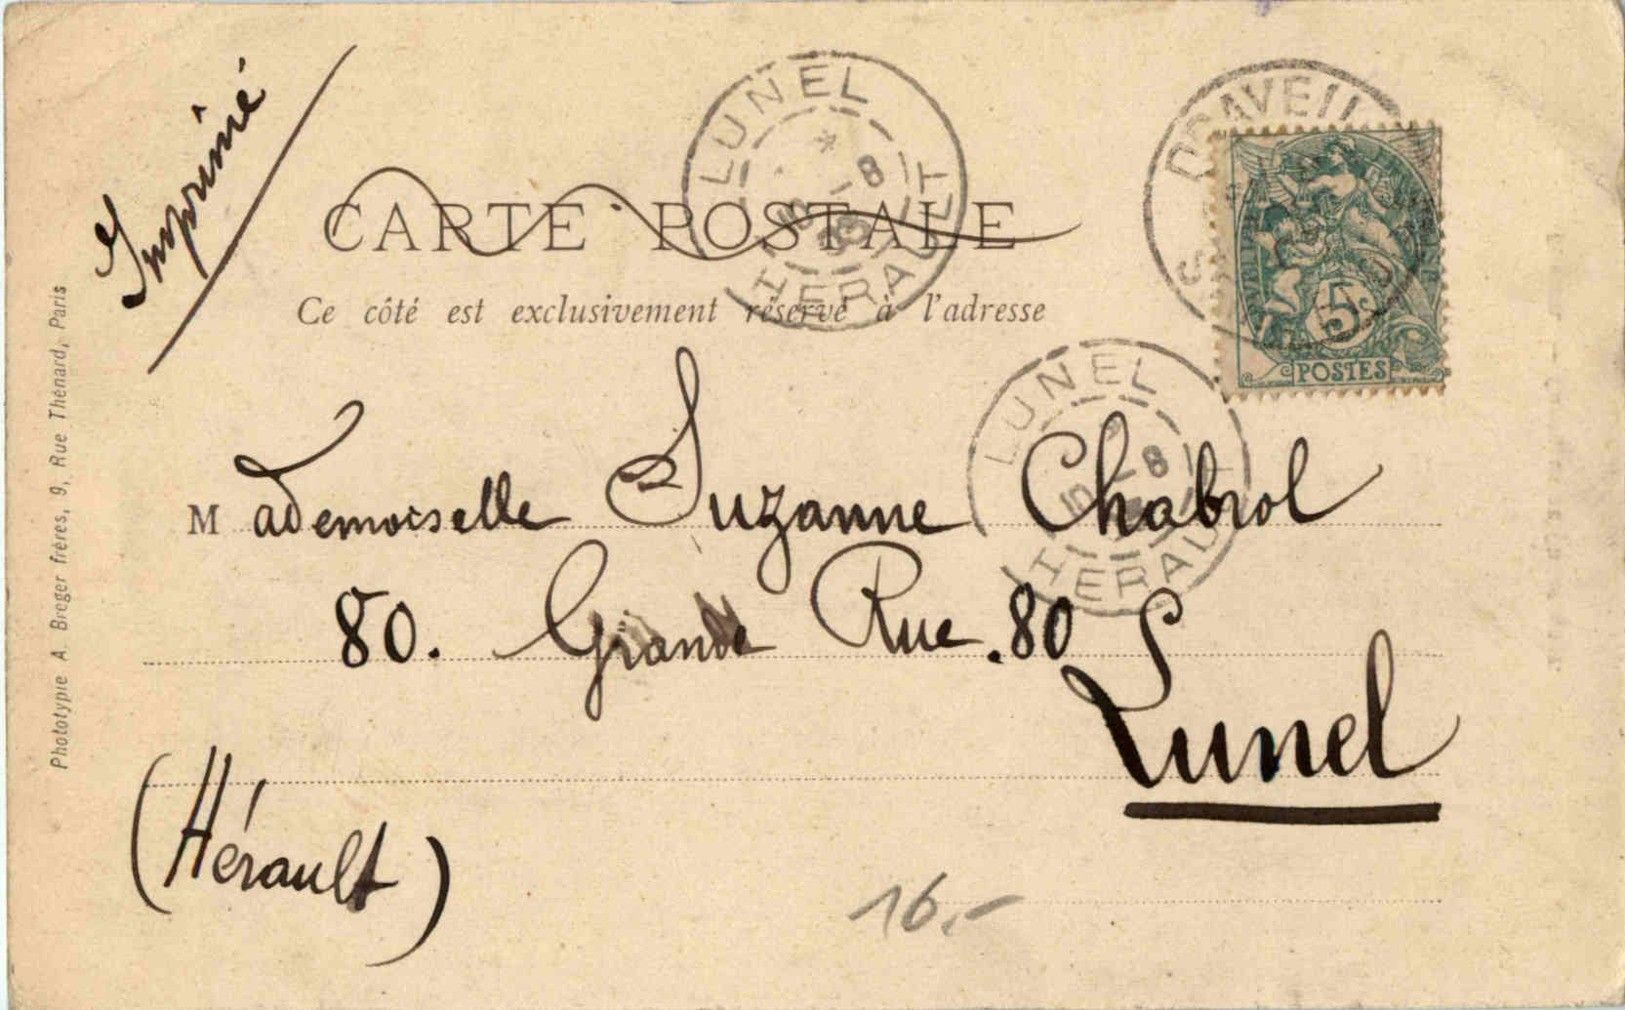 Imprimé
CARTE POSTALE
Ce côté est exclusivement réservé à l'adresse
LUNEL
HERAULT
DRAVEIL
5c
POSTES
LUNEL
HERAULT
Mademoiselle Suzanne Chabrol
80. Grande Rue. 80
Lunel
(Hérault)
16.-
Phototypie A. Breger frères, 9, Rue Thénard, Paris